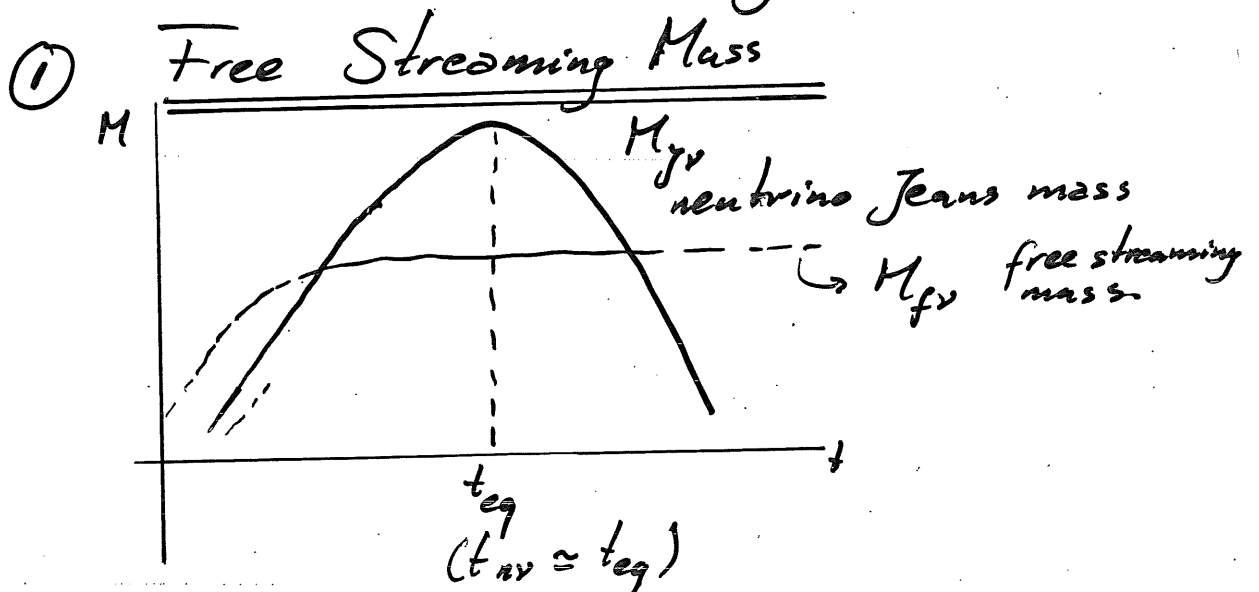 ① Free Streaming Mass
M
M_Jν
neutrino Jeans mass
M_fν free streaming
mass
t
t_eq
(t_nν ≃ t_eq)